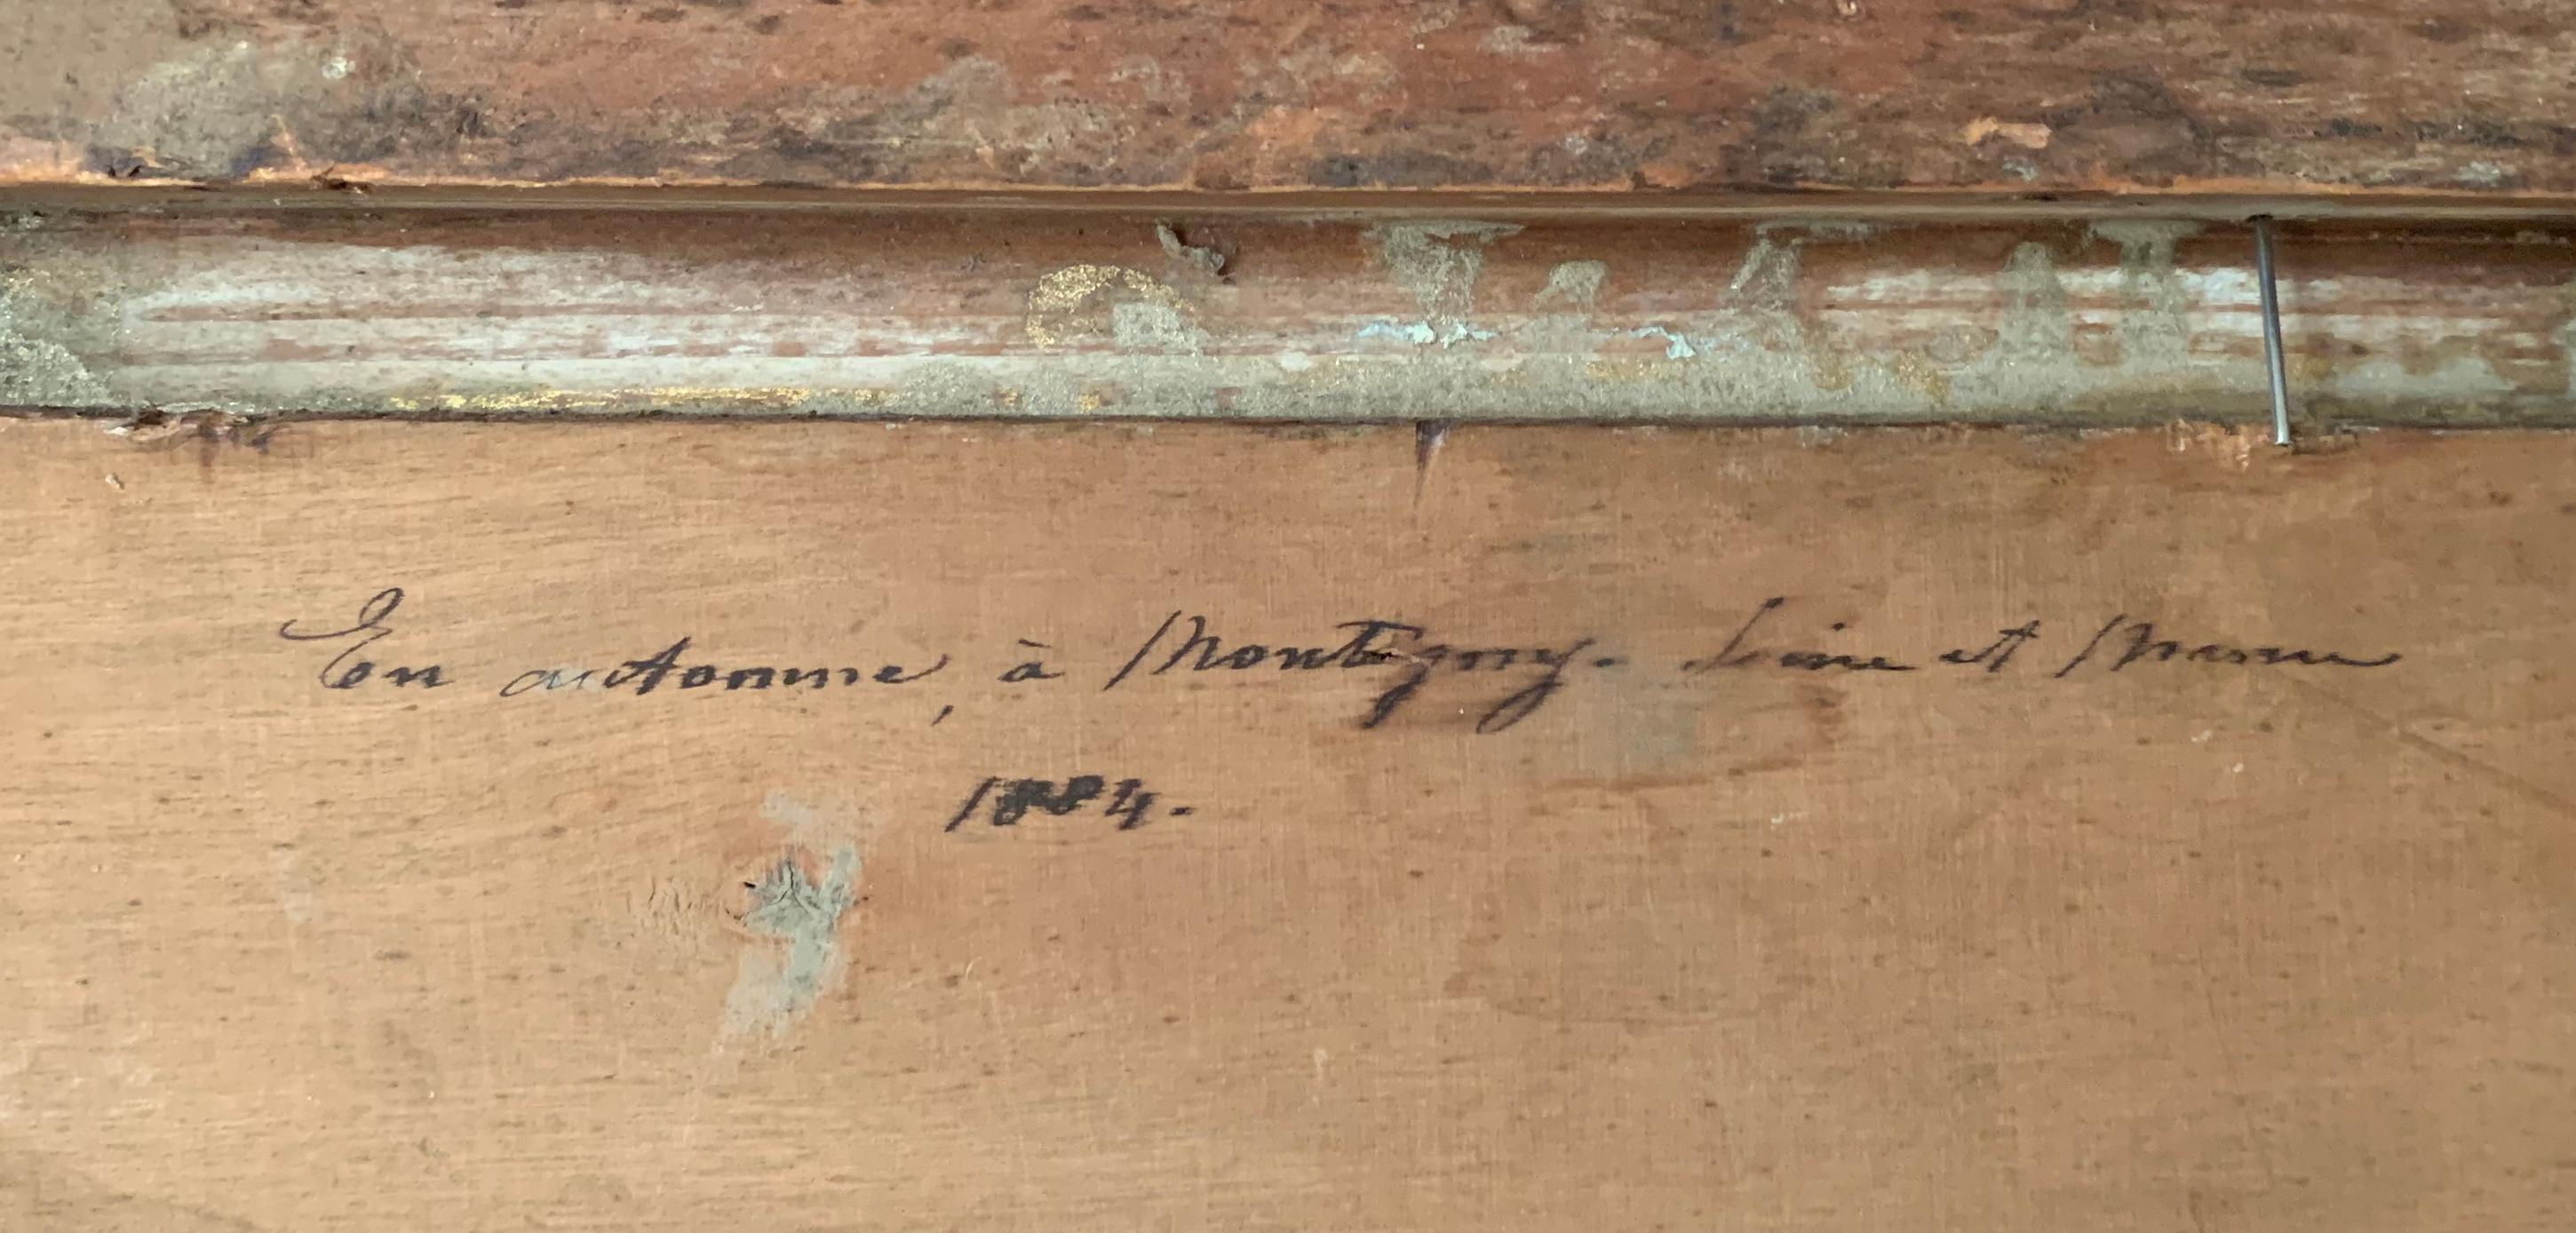 En automne, à Montigny. Seine et Marne
1884.